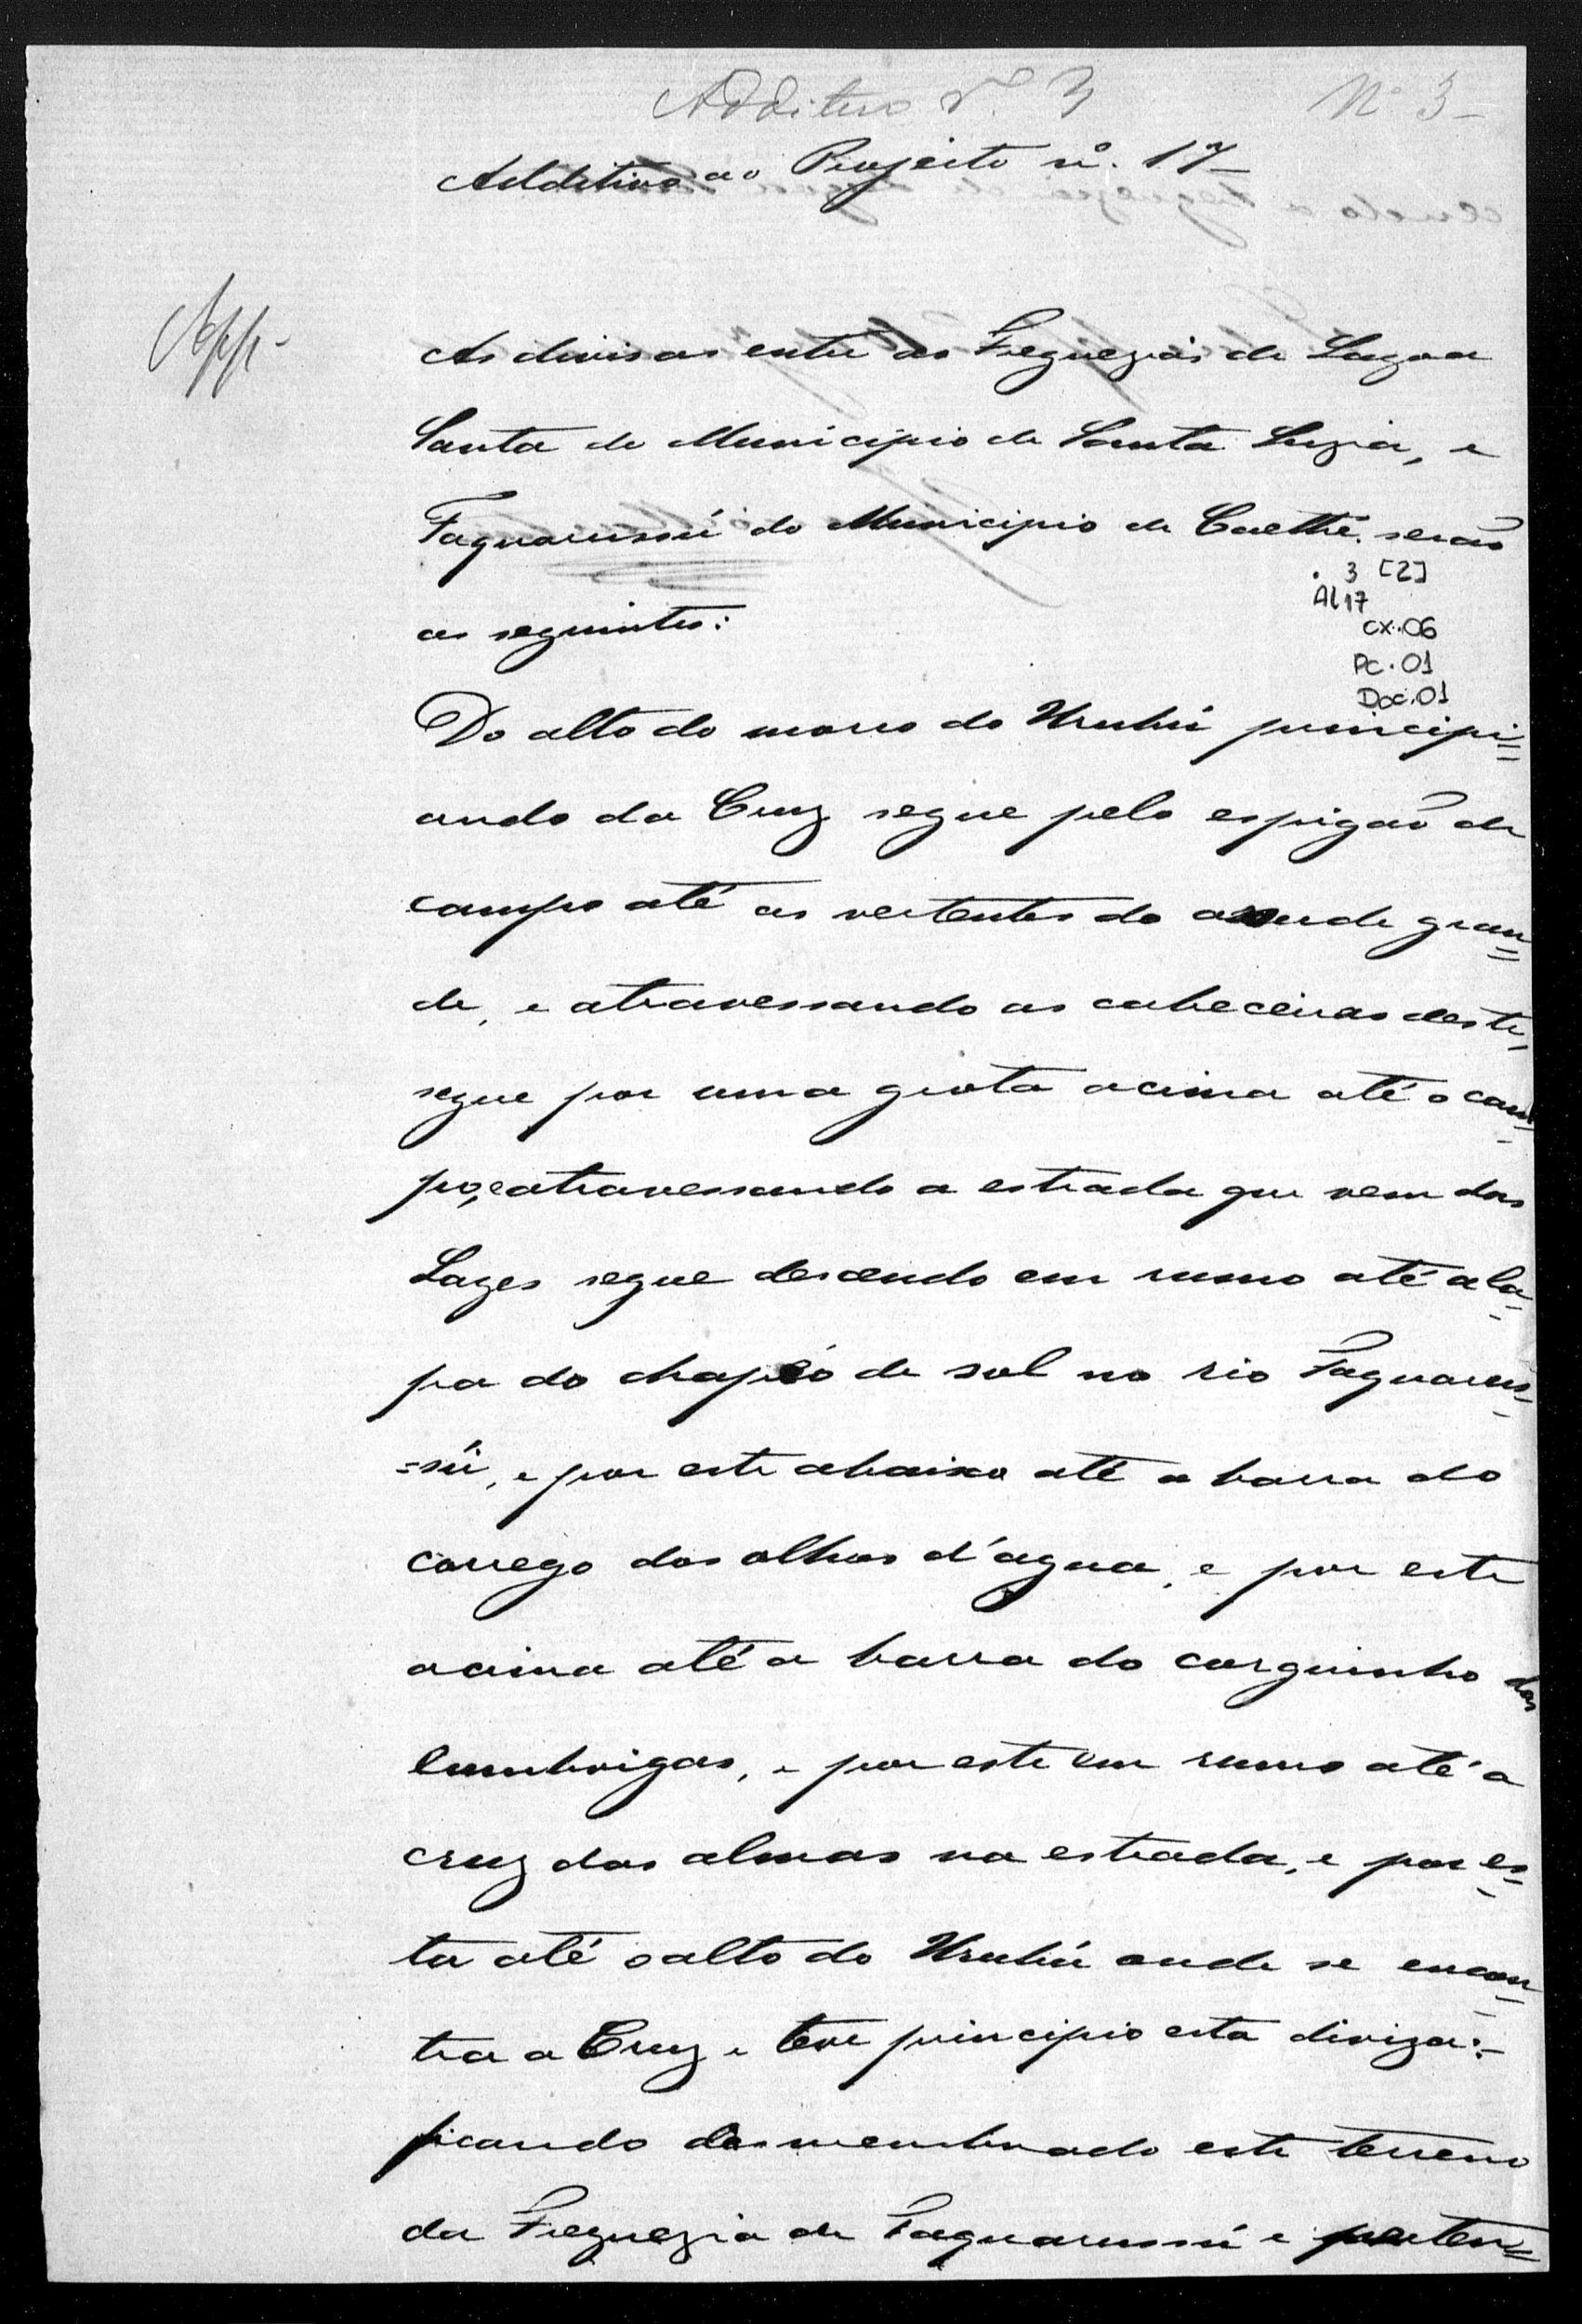 Additivo Nº. 3
Nº 3-
Additivo ao Projecto nº. 17-
App-
As divisas entre as Freguezias de Lagoa
Santa do Municipio de Santa Luzia, e
Taquarussú do Municipio de Caethé, serão
as seguintes:
. 3 [2]
AL17
cx.06
Pc.01
Doc.01
Do alto do morro do Urubú principi=
ando da Cruz segue pelo espigão do
campo até as vertentes do assude gran=
de, e atravessando as cabeceiras deste,
segue por uma grota acima até o cam=
po, e atravessando a estrada que vem das
Lages segue descendo em rumo até a la=
pa do chapéo de sol no rio Taquarus=
=sú, e por este abaixo até a barra do
corrego dos olhos d'agua, e por este
acima até a barra do corguinho das
lumbrigas, e por este em rumo até a
cruz das almas na estrada, e por es=
ta até o alto do Urubú onde se encon=
tra a Cruz e teve principio esta diviza:-
ficando desmembrado este terreno
da Freguezia de Taquarussú e perten=